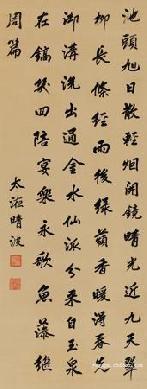 池頭旭日散輕烟開鏡晴光近九天翠
柳長條經雨後綠蘋香暖得春先
御溝流出通金水仙派分來自玉泉
在鎬欣陪宴樂永歌魚藻繼
周篇
太液晴波